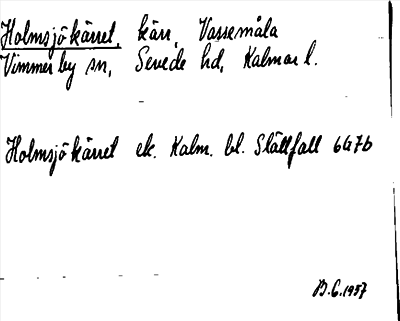 Holmsjökärret, kärr, Vassemåla
Vimmerby sn, Sevede hd, Kalmar l.
Holmsjökärret ek. Kalm. bl. Slättfall 6G7b
B.G. 1957